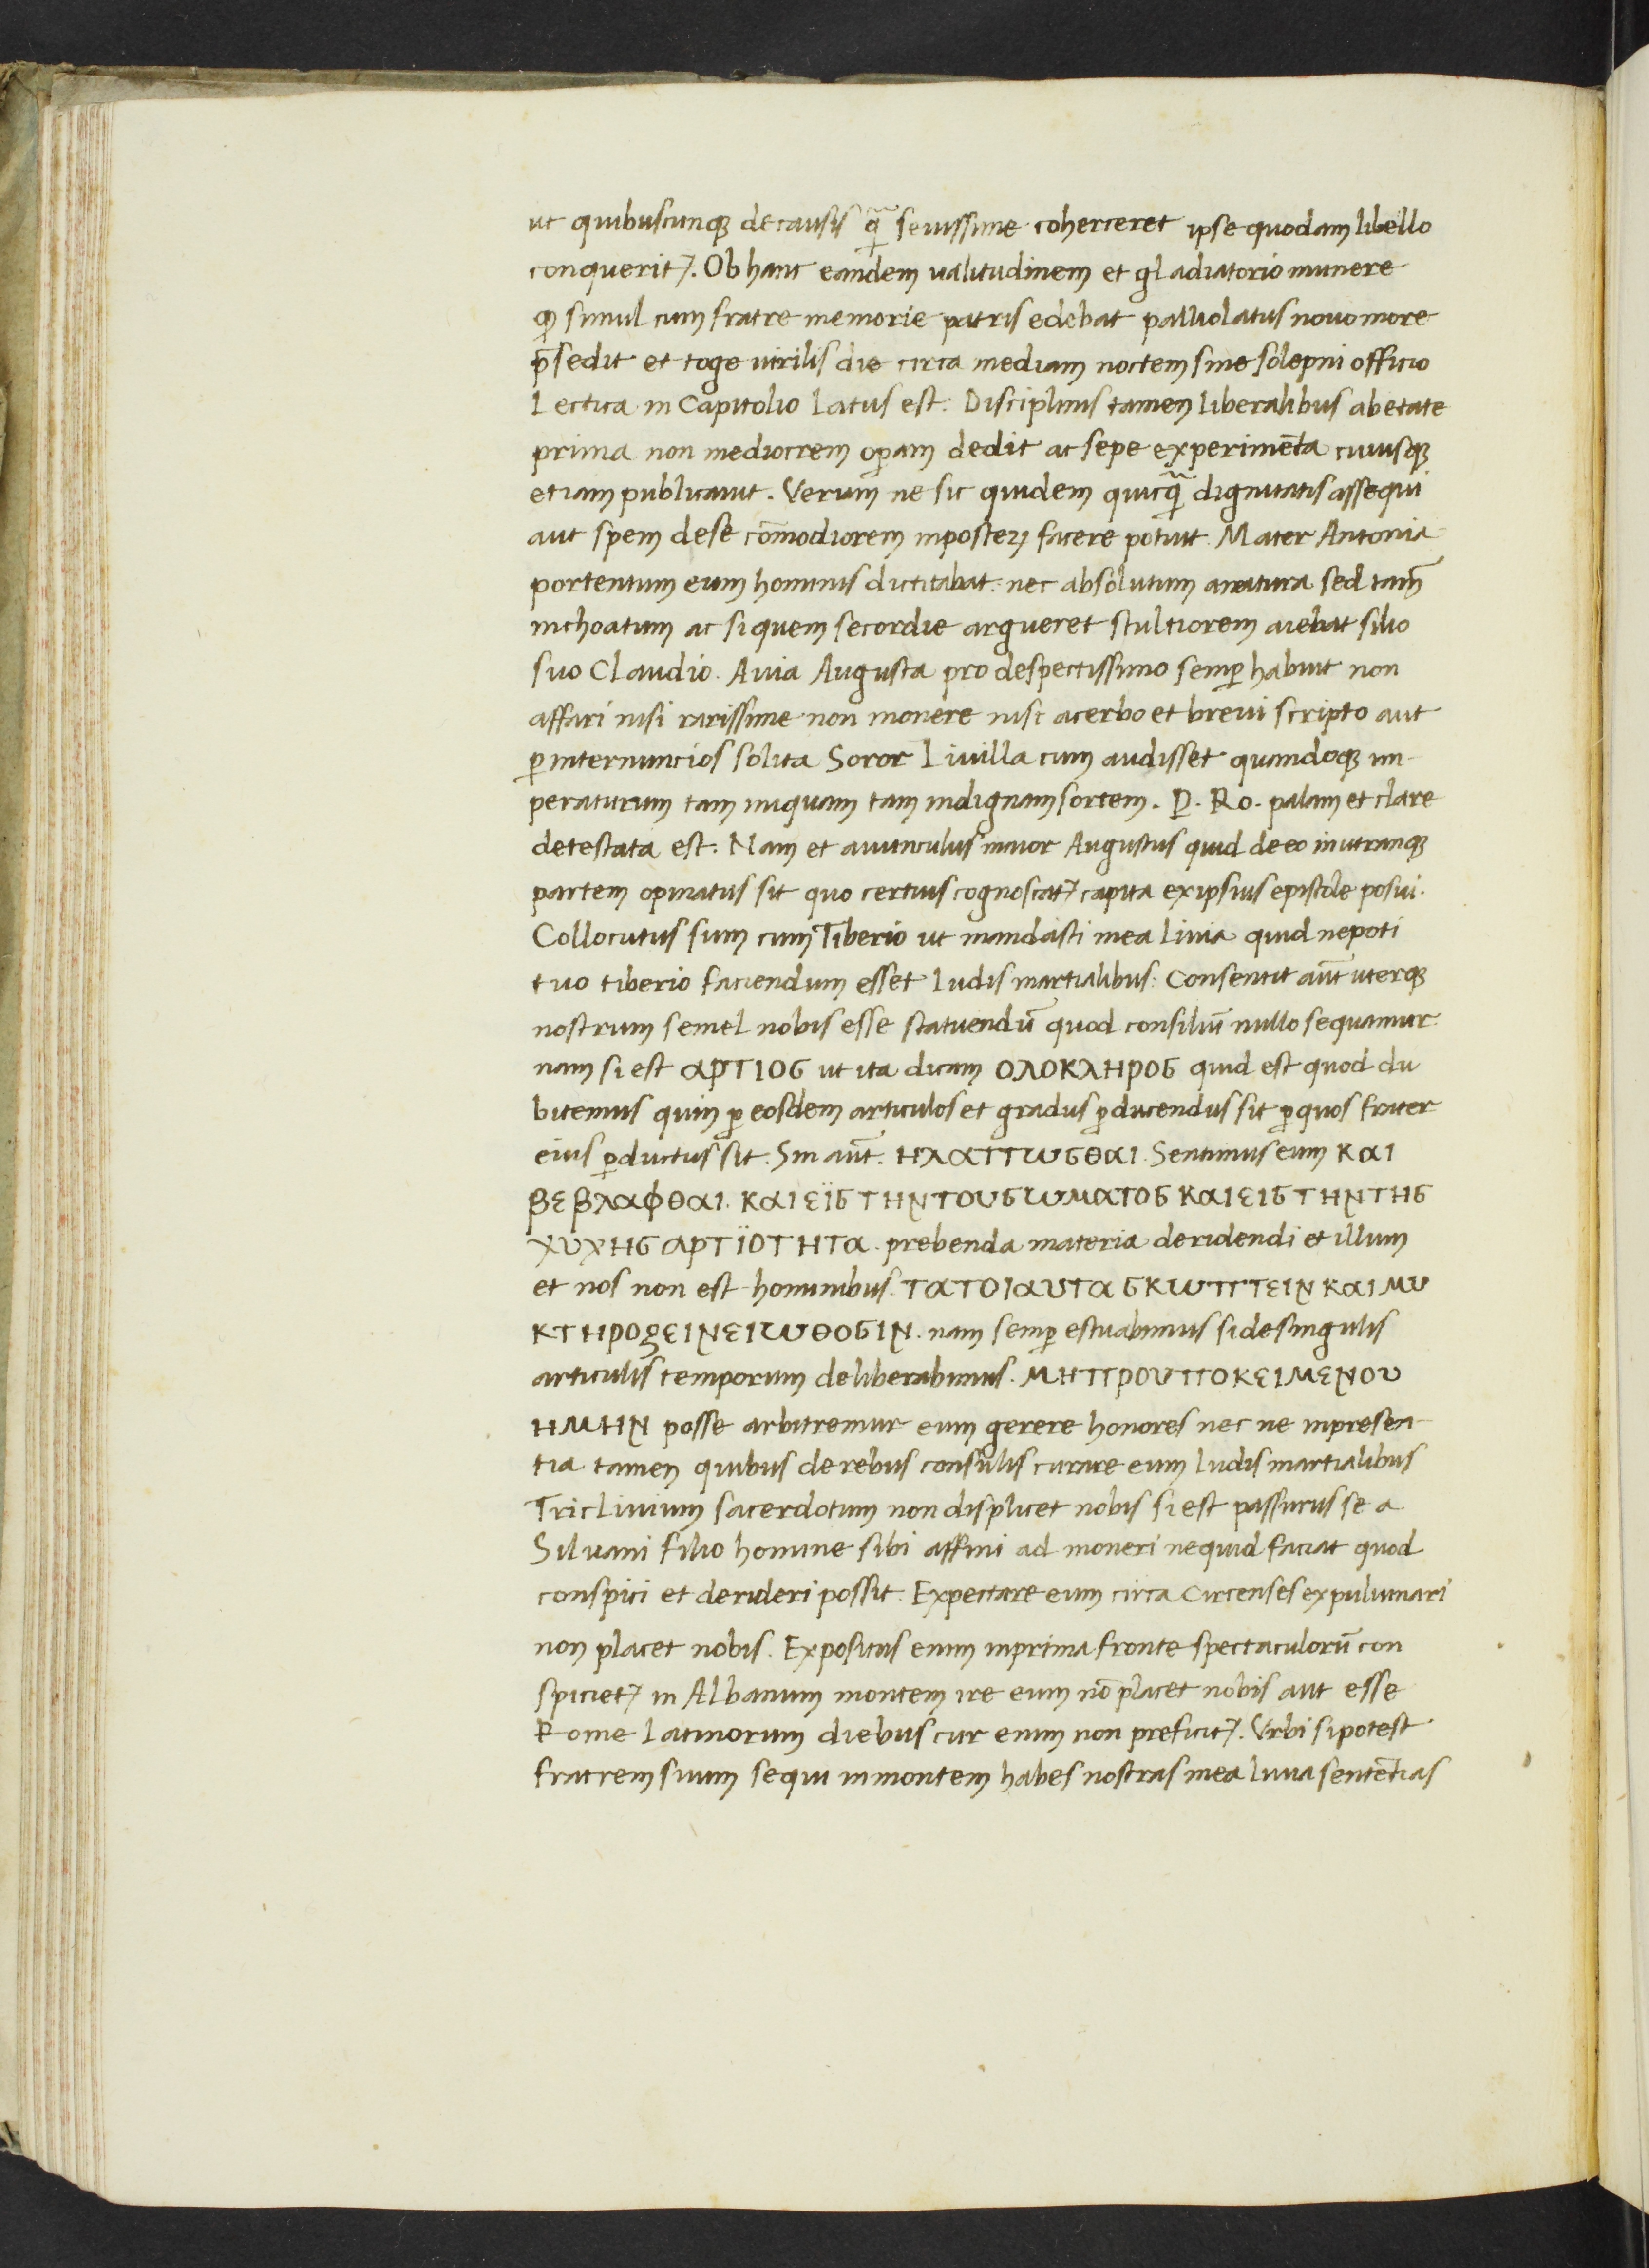 ut quibuscunq; de causis q̃ seuissime coherceret ipse quodam libello
conquerit̃. Ob hanc eandem ualitudinem et gladiatorio munere
q simul cum fratre memorie patris edebat palliolatus nouo more
p̄sedit et toge uirilis die circa mediam noctem sine solepni officio
Lectica in Capitolio latus est: Disciplinis tamen liberalibus ab etate
prima non mediocrem oꝑam dedit ac sepe experimēta cuiusq;
etiam publicauit. Verum ne sic quidem quicq̃ dignitatis assequi
aut spem de se cōmodiorem in posteꝝ facere potuit. Mater Antonia
portentum eum hominis dictitabat: nec absolutum a natura sed tam̄
inchoatum ac si quem secordie argueret stultiorem aiebat filio
suo Claudio. Auia Augusta pro despectissimo semꝑ habuit non
affari nisi rarissime non monere nisi acerbo et breui scripto aut
ꝑ internuncios solita Soror Liuilla cum audisset quandoq; im-
peraturum tam iniquam tam indignam sortem. P. Ro. palam et clare
detestata est: Nam et auunculus maior Augustus quid de eo in utranq;
partem opinatus sit quo certius cognoscat̃ capita ex ipsius epistole posui.
Collocutus sum cum Tiberio ut mandasti mea Liuia quid nepoti
tuo tiberio faciendum esset ludis martialibus: Consentit aūt uterq;
nostrum semel nobis esse statuendū quod consiliū nullo sequamur.
nam si est ΑΡΤΙΟϹ ut ita dicam ΟΛΟΚΛΗΡΟϹ quid est quod du
bitemus quin ꝑ eosdem articulos et gradus ꝑducendus sit ꝑ quos frater
eius ꝑductus sit: Sin aūt: ΗΛΑΤΤωϹΘΑΙ. Sentimus eum ΚΑΙ
ΒΕΒΛΑΦΘΑΙ. ΚΑΙ ΕΪϹ ΤΗΝ ΤΟΥ ϹωΜΑΤΟϹ ΚΑΙ ΕΙϹ ΤΗΝ ΤΗϹ
ΧΥΧΗϹ ΑΡΤΪΟΤΗΤΑ. prebenda materia deridendi et illum
et nos non est hominibus. ΤΑ ΤΟΙΑΥΤΑ ϹΚωΠΤΕΙΝ ΚΑΙ ΜΥ
ΚΤΗΡΟΖΕΙΝ ΕΙωΘΟϹΙΝ. nam semꝑ estuabimus si de singulis
articulis temporum deliberabimus. ΜΗ ΠΡΟΥΠΟΚΕΙΜΕΝΟΥ
ΗΜΗΝ posse arbitremur eum gerere honores nec ne in presen-
tia tamen quibus de rebus consulis curare eum ludis martialibus
Triclinium sacerdotum non displicet nobis si est passurus se a
Siluani filio homine sibi affini ad moneri ne quid faciat quod
conspici et derideri possit: Expectare eum circa Circenses ex puluinari
non placet nobis. Expositus enim in prima fronte spectaculorū con
spiciet̃ in Albanum montem ire eum nō placet nobis aut esse
Rome latinorum diebus cur enim non preficit̃. Vrbi si potest
fratrem suum sequi in montem habes nostras mea liuia sentētias